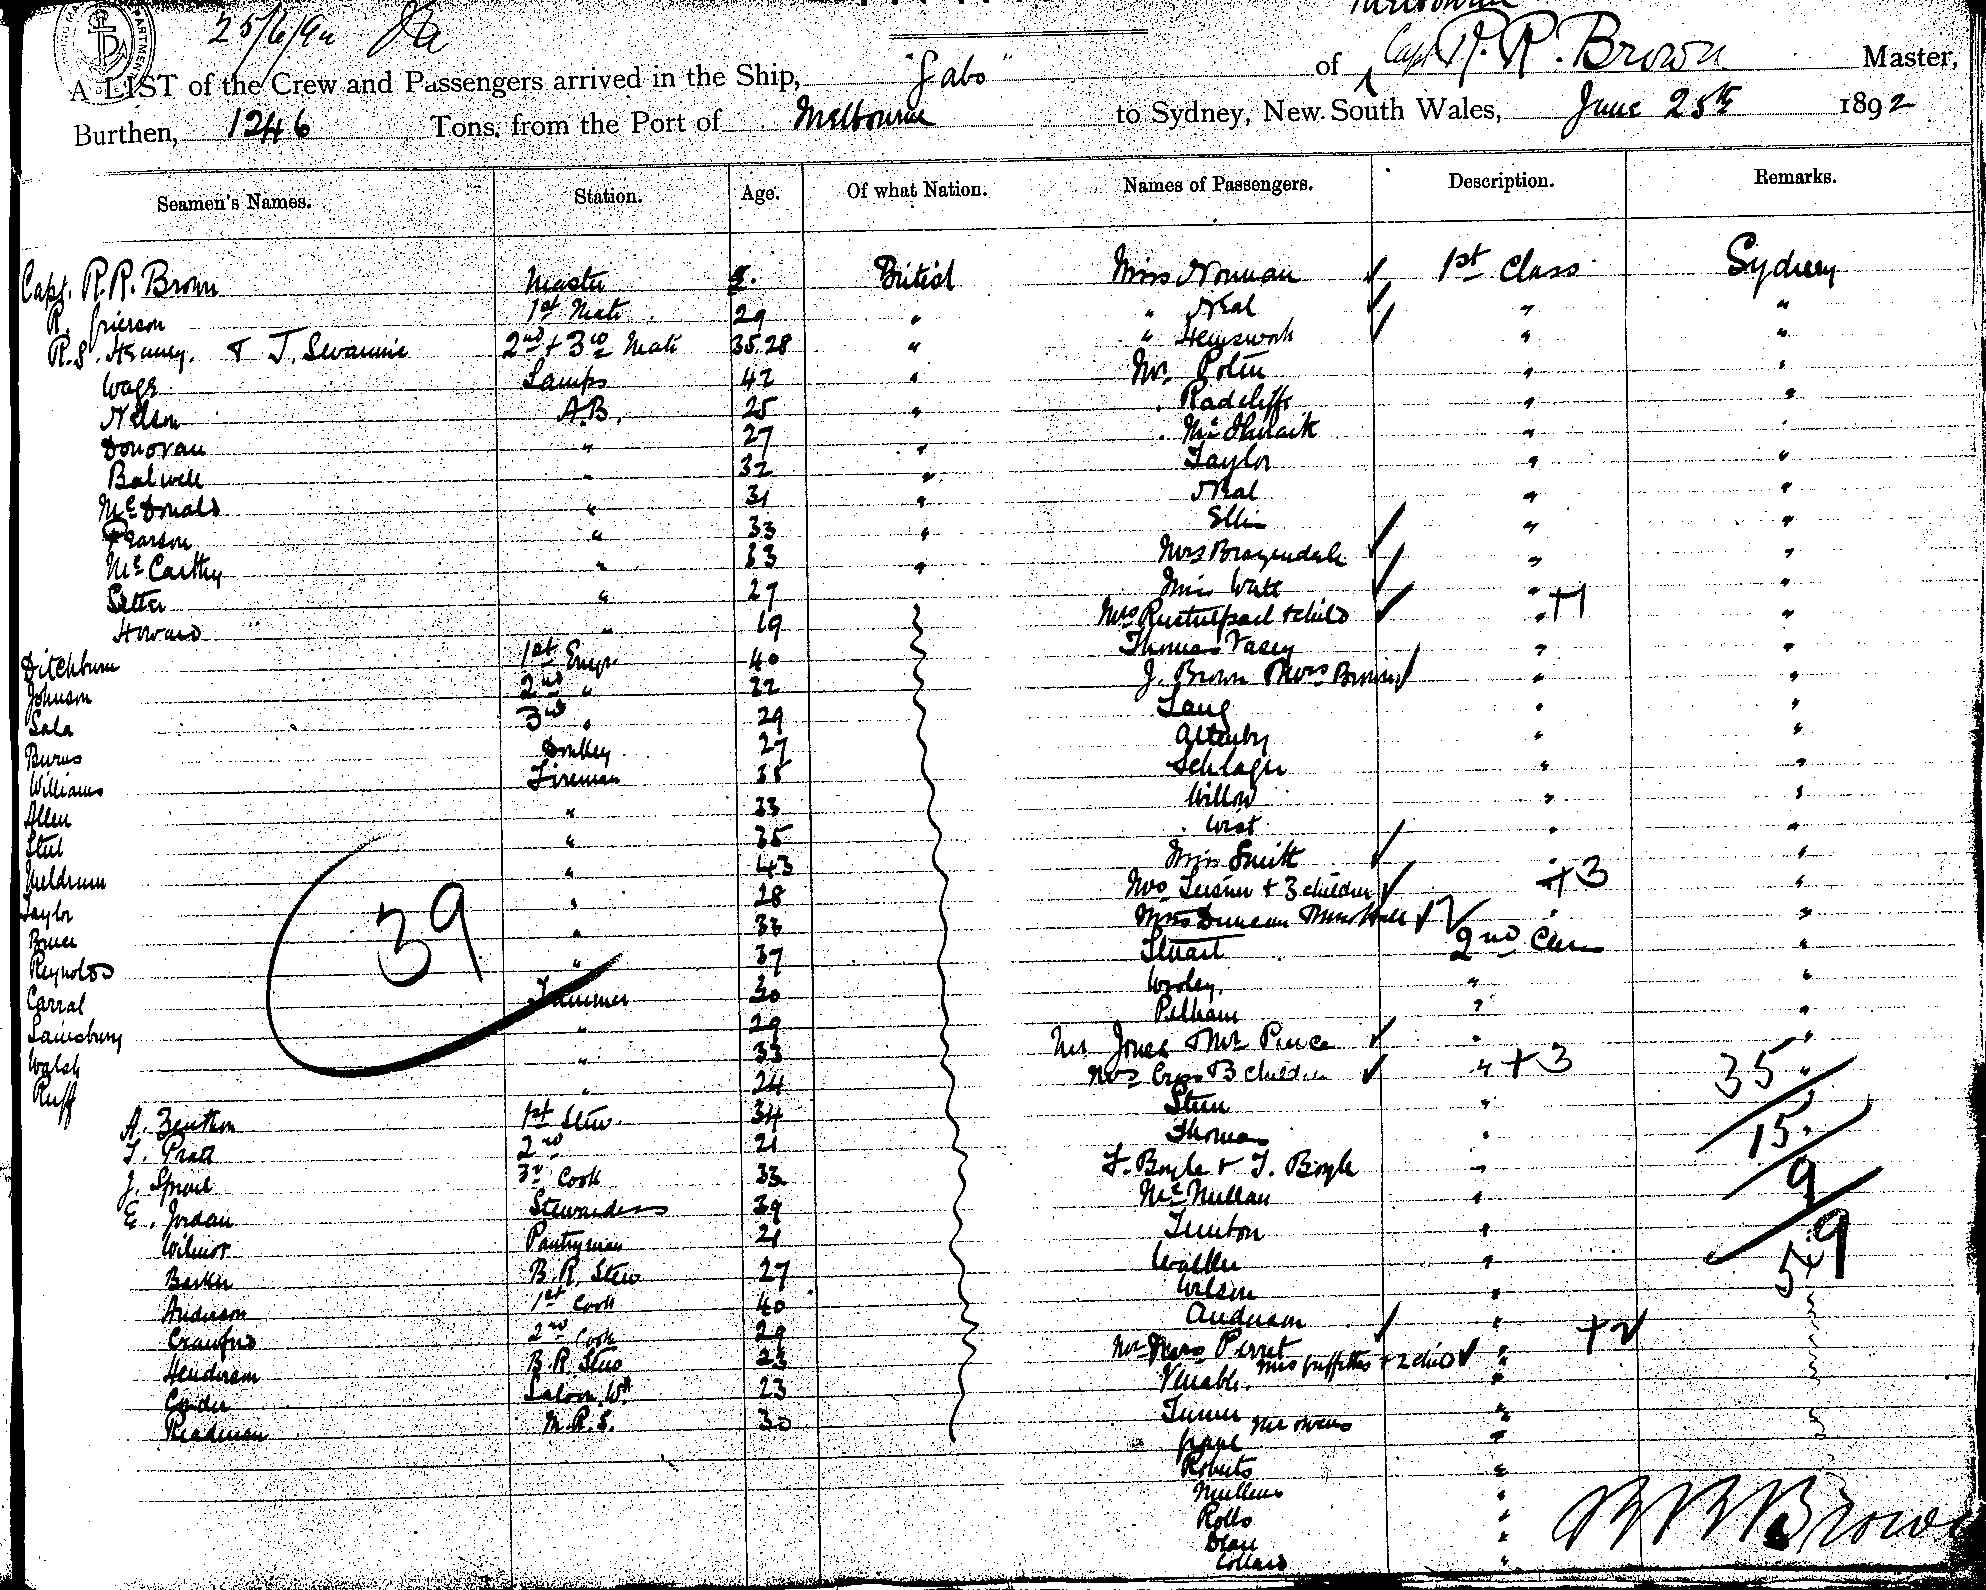 25/6/92
A LIST of the Crew and Passengers arrived in the Ship, "Gabo" of Capt R. R. Brown Master,
Burthen, 1246 Tons, from the Port of Melbourne to Sydney, New South Wales, June 25th 1892
Seamen's Names. Station. Age. Of what Nation. Names of Passengers. Description. Remarks.
Capt. R. R. Brown Master British Miss Norman ✓ 1st Class Sydney
R. Grierson 1st Mate 29 " " Neal ✓ " "
R. S. & J. 2nd + 3rd Mate 35.28 " " Hemsworth ✓ " "
Wagg Lamps 42 " Mr. " "
Nelson A.B. 25 " Radcliffe " "
Donovan " 27 " " "
Balwell " 32 " Taylor " "
McDonald " 31 " Neal " "
Pearson " 33 " Ellis " "
McCarthy " 33 " Mrs Bragendale ✓ " "
" 27 Miss Watt ✓ " "
Howard " 19 Mrs & child ✓ " +1 "
Ditchburn 1st Engr 40 Thomas Vasey " "
Johnson 2nd " 22 J. Brown & Mrs Brown ✓ " "
Sala 3rd " 29 Lang " "
Burns Donkey 27 Attenby " "
Williams Fireman 35 Schlager " "
Allen " 33 Willow " "
" 35 West " "
Meldrum " 43 Miss Smith ✓ " "
Taylor " 28 Mrs + 3 children ✓ +3 "
Bruce " 33 Miss Duncan & Miss Hall ✓ " "
Reynolds " 37 Stuart 2nd Class "
Carral Trimmer 30 Wooley " "
Sainsbury " 29 Pelham " "
Walsh " 33 Mrs Jones & Mrs Pearce ✓ " "
Ruff " 24 Mrs Cross 3 children ✓ " +3 "
39
35
15
9
59
A. Zeuthen 1st Stew. 34 "
T. Pratt 2nd 21 Thomas "
J. Sproul 3rd Cook 33 F. Boyle & T. Boyle "
E. Jordan Stewardess 39 McMillan "
Wilmot Pantryman 21 "
Barker B.R. Stew 27 Walker "
Anderson 1st Cook 40 Wilson "
Crawford 2nd Cook 29 Anderson ✓ "
Henderson B.R. Stew 23 Mr Mrs Perret " +2
Saloon Wtr 23 Venable. Mrs Griffiths + 2 child ✓ "
Readman M.R.S. 30 Turner Mrs Owens "
"
Roberts "
Mullens "
Rolls "
"
Collard "
R R Brown